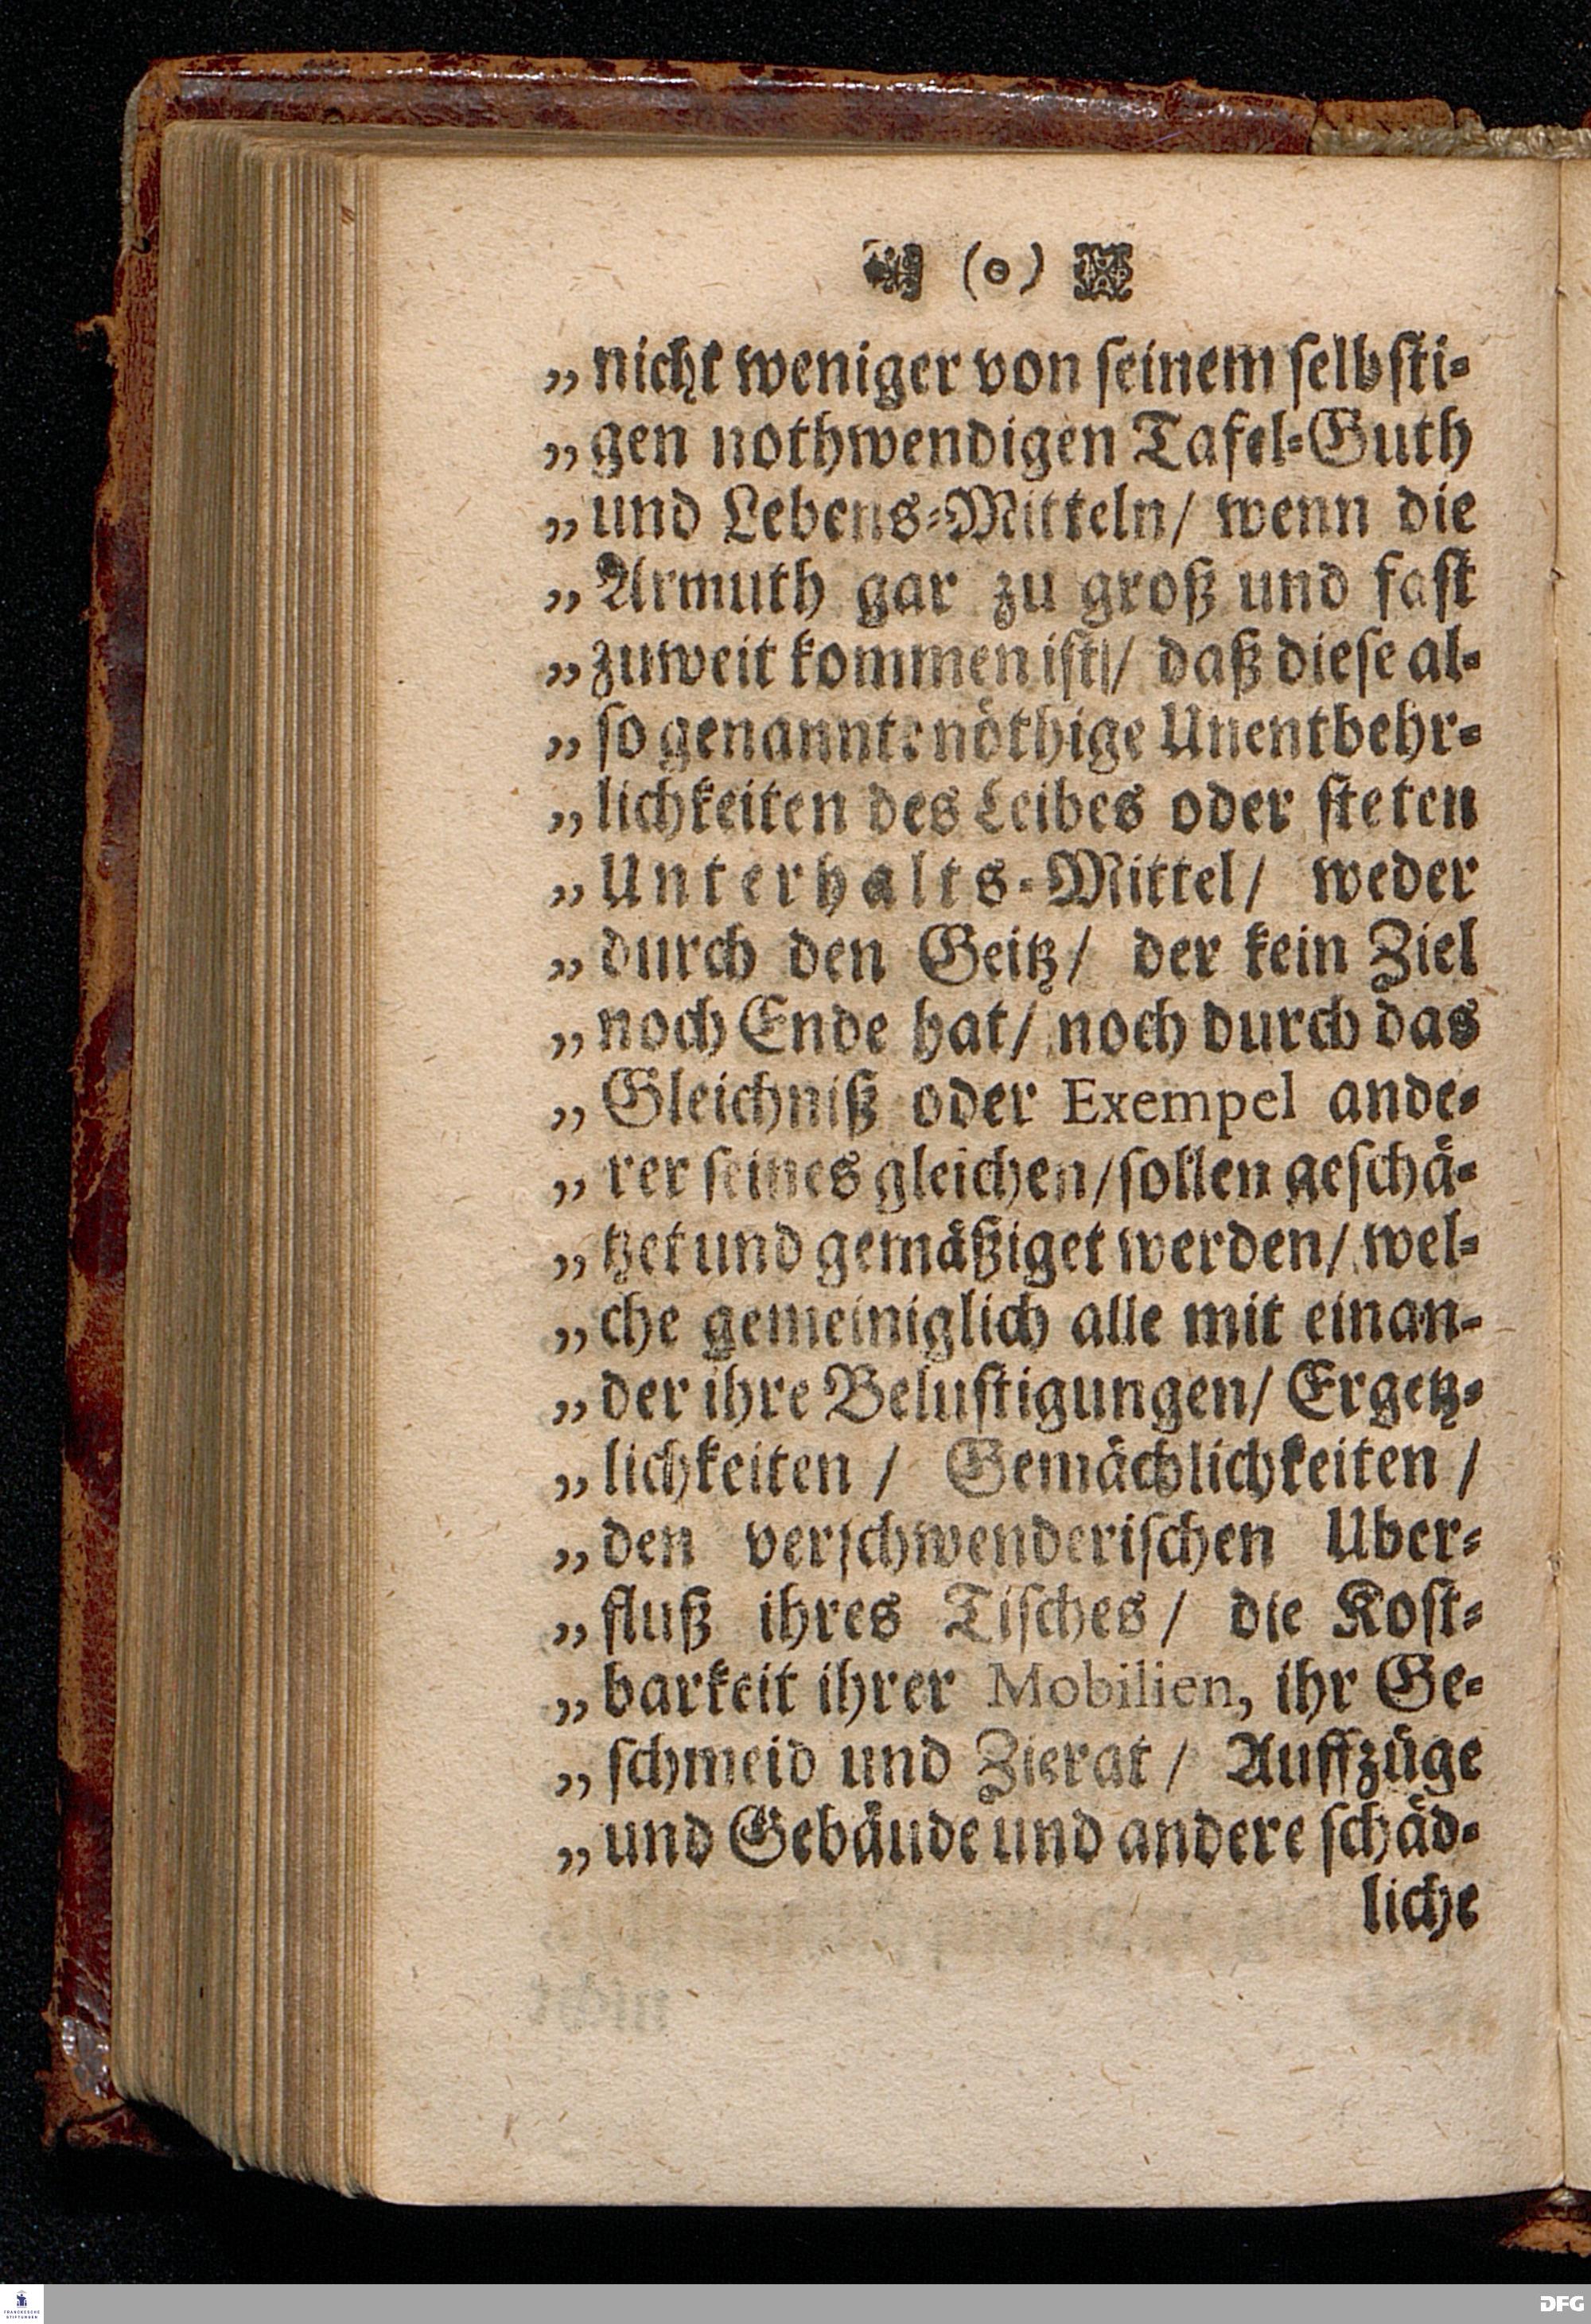 (o)
„nicht weniger von seinem selbsti-
„gen nothwendigen Tafel-Guth
„und Lebens-Mitteln/ wenn die
„Armuth gar zu groß und fast
„zuweit kommen ist/ daß diese al-
„so genannte nöthige Unentbehr-
„lichkeiten des Leibes oder steten
„Unterhalts-Mittel/ weder
„durch den Geitz/ der kein Ziel
„noch Ende hat/ noch durch das
„Gleichniß oder Exempel ande-
„rer seines gleichen/ sollen geschä-
„tzet und gemäßiget werden/ wel-
„che gemeiniglich alle mit einan-
„der ihre Belustigungen/ Ergetz-
„lichkeiten / Gemächlichkeiten /
„den verschwenderischen Uber-
„fluß ihres Tisches/ die Kost-
„barkeit ihrer Mobilien, ihr Ge-
„schmeid und Zierat / Auffzüge
„und Gebäude und andere schäd-
liche
FRANCKESCHE
STIFTUNGEN
DFG